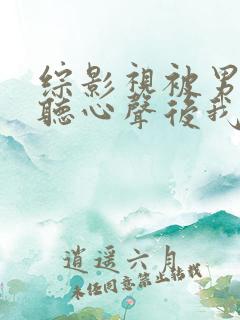 綜影視被男
聽心聲後我
逍遥六月
未经同意禁止转载